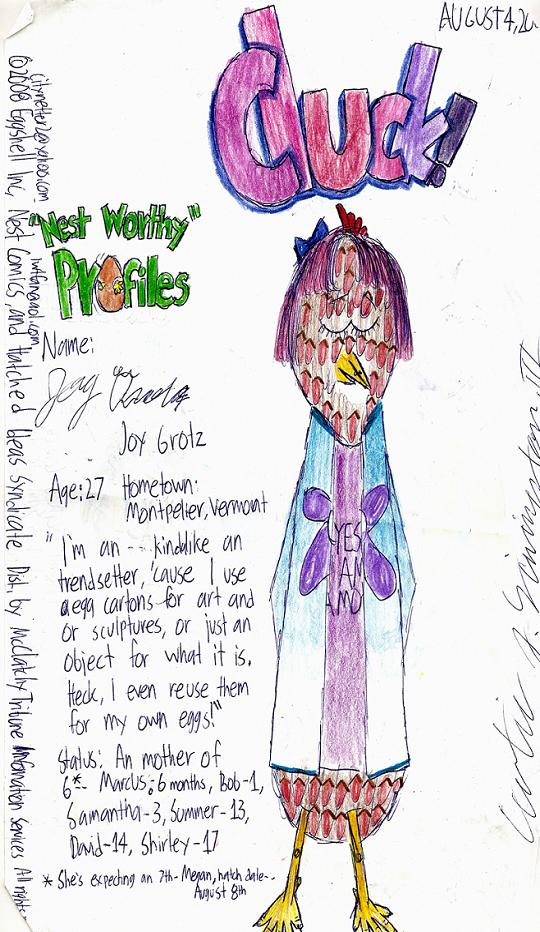 AUGUST 4, 20
Cluck!
"Nest Worthy"
Profiles
Name:
Joy Grotz
Age: 27 Hometown:
Montpelier, Vermont
"I'm an -- kindalike an
trendsetter, 'cause I use
a egg cartons for art and
or sculptures, or just an
object for what it is.
Heck, I even reuse them
for my own eggs!"
Status: An mother of
6*-- Marcus: 6 months, Bob-1,
Samantha-3, Summer-13,
David-14, Shirley-17
* She's expecting an 7th- Megan, hatch date--
August 8th
YES
I AM
A MOM
©2008 Eggshell Inc, Nest Comics, and Hatched Ideas Syndicate Dist. by McClatchy Tribune Information Services All rights